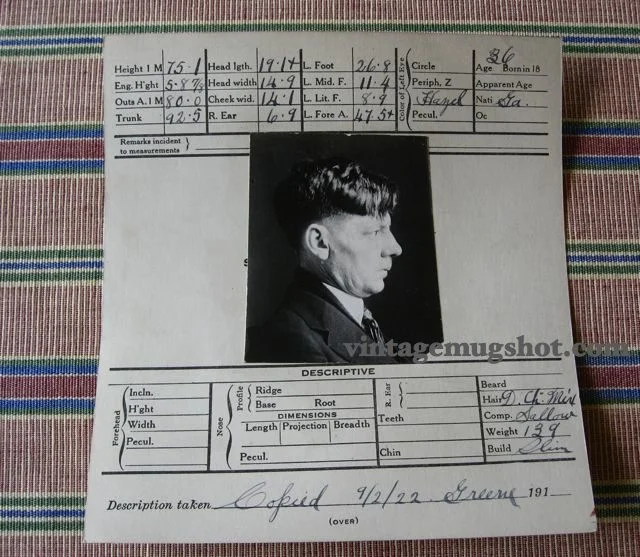 Height 1 M 75.1 Head lgth. 19.1+ L. Foot 26.8 Circle Age 36 Born in 18
Eng. H'ght 5.8⅞ Head width 14.9 L. Mid. F. 11.4 Periph, Z Apparent Age
Outs A. 1 M 80.0 Cheek wid. 14.1 L. Lit. F. 8.9 Color of Left Eye Hazel Nati Ga.
Trunk 92.5 R. Ear 6.9 L. Fore A. 47.5+ Pecul. Oc
Remarks incident
to measurements
vintagemugshot.com
DESCRIPTIVE
Forehead Incln. Nose Profile Ridge R. Ear Beard
H'ght Base Root Hair D. Ch. Mix
Width DIMENSIONS Teeth Comp. Sallow
Pecul. Length Projection Breadth Weight 139
Pecul. Chin Build Slim
Description taken Copied 9/2/22 Greene 191
(OVER)